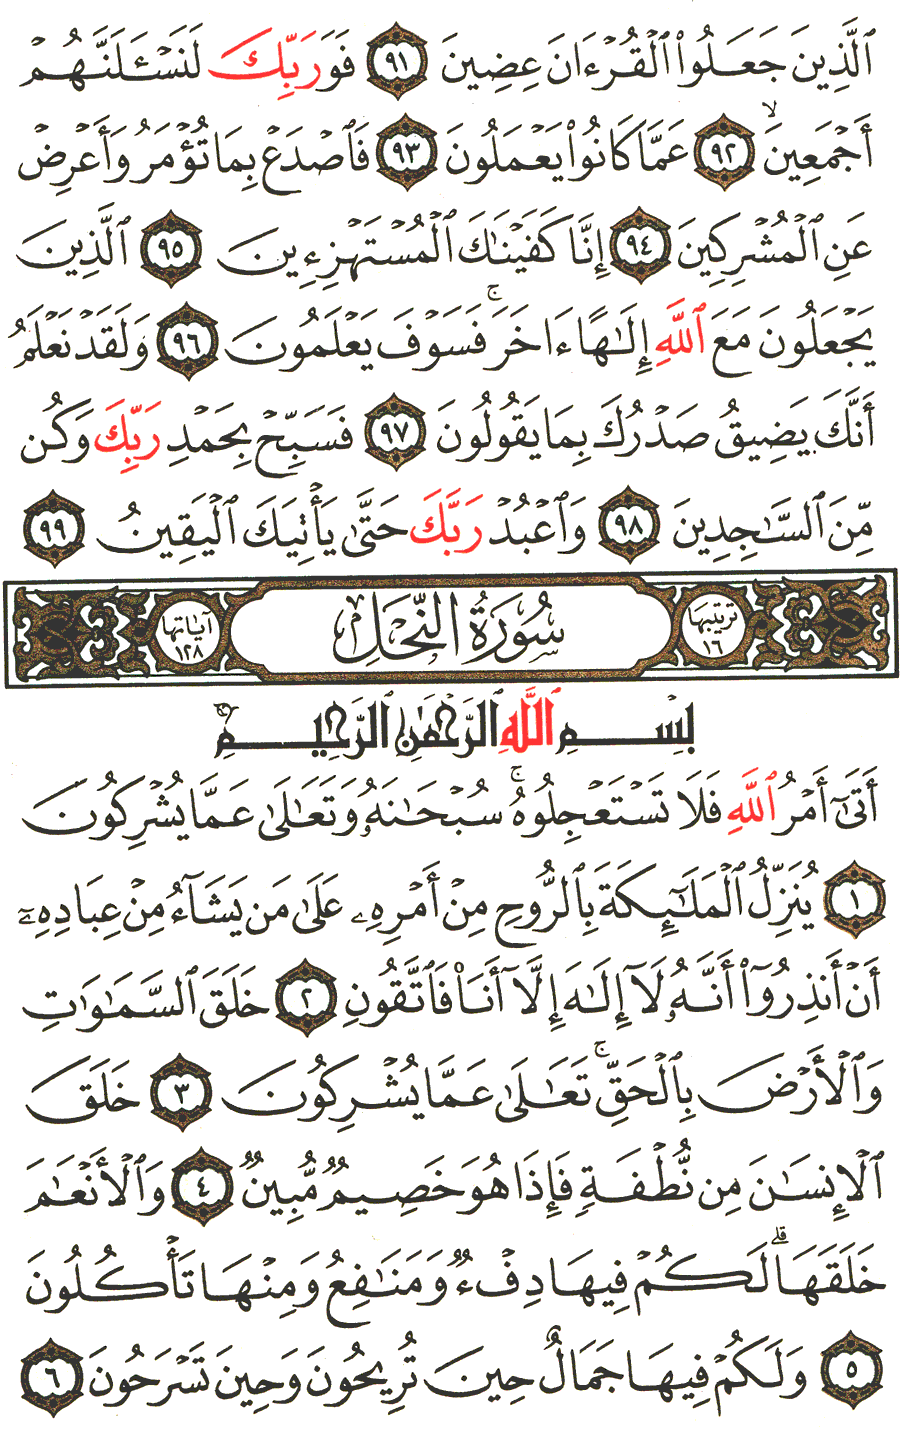 ٱلَّذِينَ جَعَلُوا۟ ٱلْقُرْءَانَ عِضِينَ ٩١ فَوَرَبِّكَ لَنَسْـَٔلَنَّهُمْ
أَجْمَعِينَ ۙ ٩٢ عَمَّا كَانُوا۟ يَعْمَلُونَ ٩٣ فَٱصْدَعْ بِمَا تُؤْمَرُ وَأَعْرِضْ
عَنِ ٱلْمُشْرِكِينَ ٩٤ إِنَّا كَفَيْنَٰكَ ٱلْمُسْتَهْزِءِينَ ٩٥ ٱلَّذِينَ
يَجْعَلُونَ مَعَ ٱللَّهِ إِلَٰهًا ءَاخَرَ ۚ فَسَوْفَ يَعْلَمُونَ ٩٦ وَلَقَدْ نَعْلَمُ
أَنَّكَ يَضِيقُ صَدْرُكَ بِمَا يَقُولُونَ ٩٧ فَسَبِّحْ بِحَمْدِ رَبِّكَ وَكُن
مِّنَ ٱلسَّٰجِدِينَ ٩٨ وَٱعْبُدْ رَبَّكَ حَتَّىٰ يَأْتِيَكَ ٱلْيَقِينُ ٩٩
ترتيبها ١٦ سُورَةُ النَّحْلِ آياتها ١٢٨
بِسْمِ ٱللَّهِ ٱلرَّحْمَٰنِ ٱلرَّحِيمِ
أَتَىٰٓ أَمْرُ ٱللَّهِ فَلَا تَسْتَعْجِلُوهُ ۚ سُبْحَٰنَهُۥ وَتَعَٰلَىٰ عَمَّا يُشْرِكُونَ
١ يُنَزِّلُ ٱلْمَلَٰٓئِكَةَ بِٱلرُّوحِ مِنْ أَمْرِهِۦ عَلَىٰ مَن يَشَآءُ مِنْ عِبَادِهِۦٓ
أَنْ أَنذِرُوٓا۟ أَنَّهُۥ لَآ إِلَٰهَ إِلَّآ أَنَا۠ فَٱتَّقُونِ ٢ خَلَقَ ٱلسَّمَٰوَٰتِ
وَٱلْأَرْضَ بِٱلْحَقِّ ۚ تَعَٰلَىٰ عَمَّا يُشْرِكُونَ ٣ خَلَقَ
ٱلْإِنسَٰنَ مِن نُّطْفَةٍ فَإِذَا هُوَ خَصِيمٌ مُّبِينٌ ٤ وَٱلْأَنْعَٰمَ
خَلَقَهَا ۗ لَكُمْ فِيهَا دِفْءٌ وَمَنَٰفِعُ وَمِنْهَا تَأْكُلُونَ
٥ وَلَكُمْ فِيهَا جَمَالٌ حِينَ تُرِيحُونَ وَحِينَ تَسْرَحُونَ ٦